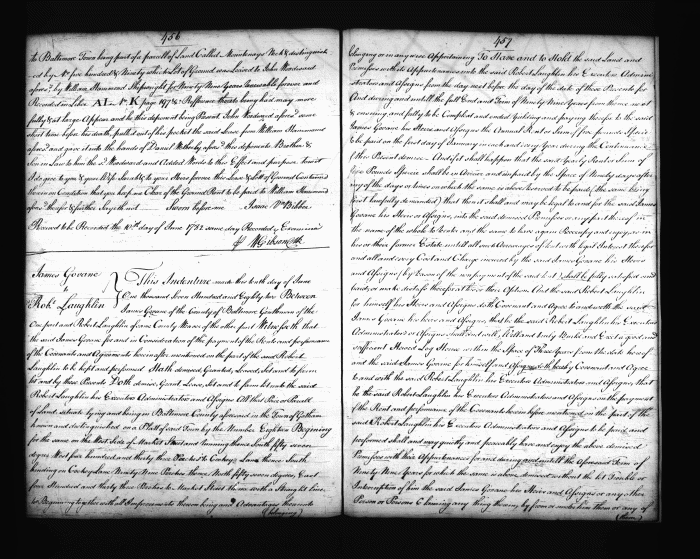 456
to Baltimore Town being part of a parcell of Land Called Mountenays Neck & distinguish
ed by No five hundred & Ninety which Lot of Ground was Leased to John Woodward
aforesd by William Hammond Shipwright for Ninety Nine Years renewable forever and
Recorded in Liber AL No K page 197 & Reference thereto being had may more
fully & at large Appear and this deponent being Present John Woodward aforesd some
short time before his death pulled out of his pocket the said Lease from William Hammond
aforesd and gave it into the hands of
Son in Law to him the sd Woodward and Added Words to this Effect and purpose
I do give to you & your Wife Sarah & to your Heirs forever this Lease & Lott of Ground Contained
therein on Condition that you keep me Clear of the Ground Rent to be paid to William Hammond
aforesd therefor & further Sayeth not Sworn before me Isaac Vn Bibber
Received to be Recorded the 10th day of June 1782 same day Recorded & Examined
James Govane
to
Robt Laughlin
This Indenture made this tenth day of June
One thousand Seven Hundred and Eighty two Between
James Govane of the County of Baltimore Gentleman of the
One part and Robert Laughlin of same County of the other part Witnesseth that
the said James Govane for and in Consideration of the payment of the Rents and performance
of the Covenants and Agreements hereinafter mentioned on the part of the said Robert
Laughlin to be kept and performed Hath demised, Granted, Leased, Set and to farm
let and by these Presents Doth demise Grant Lease, Set and to farm let unto the said
Robert Laughlin his Executors Administrators and Assigns All that Piece or Parcell
of Land situate lying and being in Baltimore County aforesaid in the Town of
known and distinguished on a Platt of said Town by the Number Eighteen Beginning
for the same on the West side of Market Street and running thence South fifty seven
degrees West four hundred and thirty three Perches to Lane thence
bounding on Lane Ninety Nine Perches thence North fifty seven degrees East
four Hundred and thirty three Perches to Market Street then with a Straight line
to Beginning together with all the Improvements thereon being and Advantages thereunto
(belonging)
457
belonging or in any wise Appertaining To Have and to Hold the said Land and
Premises with its Appurtenances unto the said Robert Laughlin his Executors Adminis
trators and Assigns from the day next before the day of the date of these Presents for
And during and untill the full End and Term of Ninety Nine Years from thence next
& ensuing and fully to be Compleat and ended Yielding and paying therefor to the said
James Govane his Heirs and Assigns the Annual Rent or Sum of five pounds Specie
to be paid on the first day of January in each and every Year during the Continuance
of this Present demise And if it shall happen that the said Yearly Rent or Sum of
five Pounds Specie shall be in Arrear and unpaid by the Space of Ninety days after
any of the days or times on which the same is above Covenanted to be paid (the same being
first lawfully demanded) that then it shall and may be legal to and for the said James
Govane his Heirs or Assigns, into the said demised Premises or any part thereof in
the name of the whole to reenter and the same to have again Possess and enjoy as in
his or their former Estate untill all such Arrearages of Rent with legal Interest thereof
and all and every Cost and Charge incurred by the said James Govane his Heirs
and Assigns (by Reason of the non payment of the said Rent) shall be fully satisfied and
paid, or
for himself his Heirs and Assigns doth Covenant and Agree to and with the said
James Govane his heirs and Assigns, that he the said Robert Laughlin his Executors
Administrators or Assigns shall and will, well and truly Build and Erect a good and
sufficient House or Log House within the Space of Three Years from the date hereof
and the said James Govane for himself and Assigns doth hereby Covenant and Agree
to and with the said Robert Laughlin his Executors Administrators and Assigns, that
he the said Robert Laughlin his Executors Administrators and Assigns on the payment
of the Rent and performance of the Covenants herein before mentioned on the part of the
said Robert Laughlin his Executors Administrators and Assigns to be paid and
performed shall and may quietly and peaceably have and enjoy the above demised
Premises with their Appurtenances for and during and untill the Aforesaid Term of
Ninety Nine Years for which the same is above demised without the let Trouble or
Interruption of him the said James Govane his Heirs and Assigns or any other
Person or Persons Claiming any thing therein, by from or under him them or any of
(them)